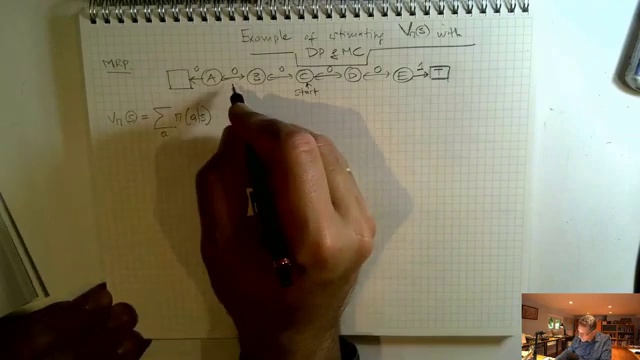 Example of estimating Vπ(s) with
DP & MC
MRP
0 0 0 0 0 1
A B C D E T
start
Vπ(s) = Σ π(a|s)
a